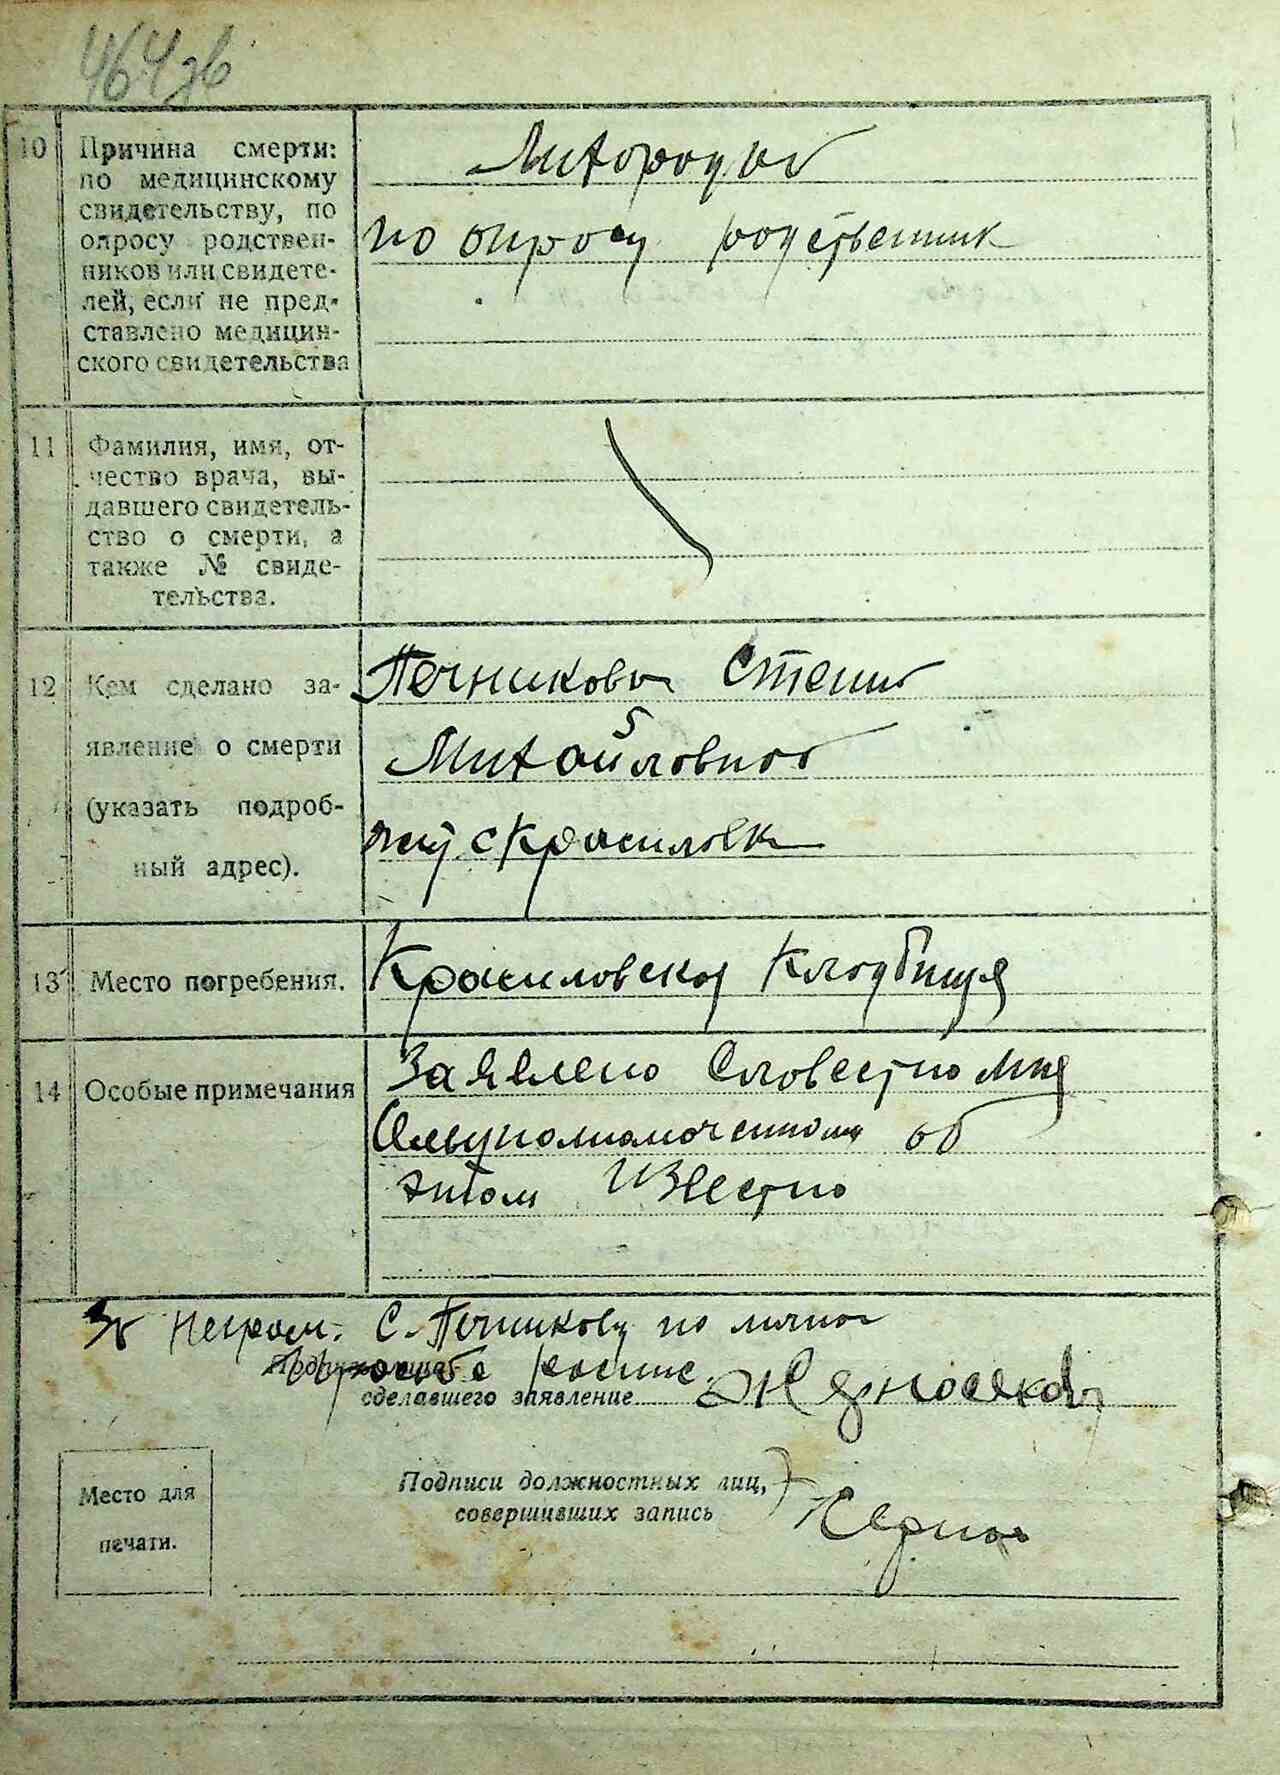 464 зв
10 Причина смерти:
по медицинскому
свидетельству, по
опросу родствен-
ников или свидете-
лей, если не пред-
ставлено медицин-
ского свидетельства
по опросу родственник
11 Фамилия, имя, от-
чество врача, вы-
давшего свидетель-
ство о смерти, а
также № свиде-
тельства.
12 Кем сделано за-
явление о смерти
(указать подроб-
ный адрес).
Печникова Степ
Михайловна
с Красиловк
13 Место погребения.
Красиловской Кладбищя
14 Особые примечания
Заявлено Словестно Мня
об
этом Известно
За Неграм. С. Печникову по лично
просьбе
сделавшего заявление
Подписи должностных лиц,
совершивших запись
Место для
печати.